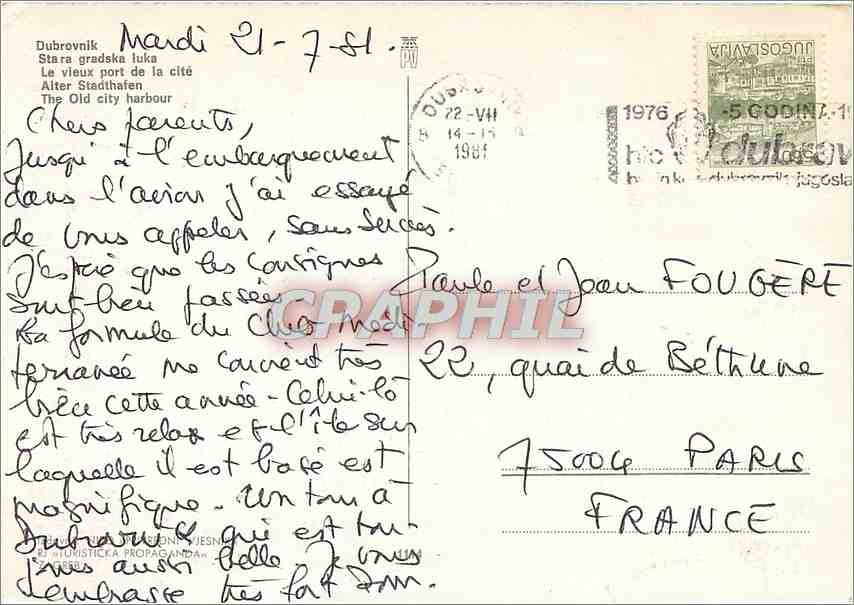 Dubrovnik
Stara gradska luka
Le vieux port de la cité
Alter Stadthafen
The Old city harbour
Mardi 21-7-81.
PV
Chers parents,
Jusqu'à l'embarquement
dans l'avion j'ai essayé
de vous appeler, sans succès.
J'espère que les consignes
sont bien passées.
La formule du Club Médi-
terranée me convient très
bien cette année. Celui-là
est très relax et l'île sur
laquelle il est basé est
magnifique. Un tour à
Dubrovnik qui est tou-
jours aussi belle. Je vous
embrasse très fort
RJ »TURISTIČKA PROPAGANDA«
ZAGREB
22-VII
14-15
1981
JUGOSLAVIJA
1976
-5 GODINA-
dubrav
Paule et Jean FOUGÈRE
22, quai de Béthune
75004 PARIS
FRANCE
CPAPHIL